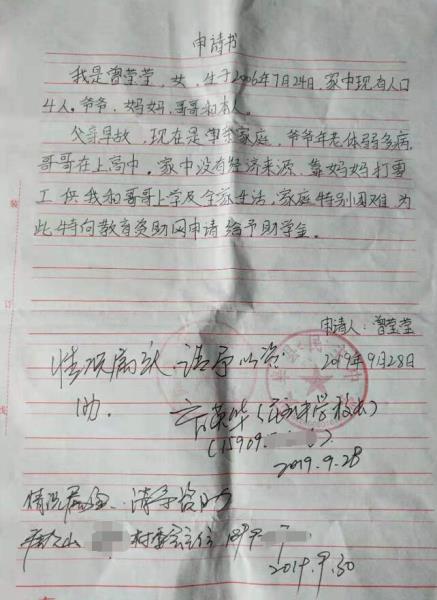 申请书
我是曾莹莹，女，生于2006年7月24日，家中现有人口
4人。爷爷，妈妈，哥哥和本人。
父亲早故，现在是单亲家庭，爷爷年老体弱多病，
哥哥在上高中，家中没有经济来源，靠妈妈打零
工供我和哥哥上学及全家生活，家庭特别困难，为
此特向教育资助网申请给予助学金。
申请人：曾莹莹
2019年9月28日
情况属实，请予以资
助。
(15909
2019.9.28
情况属实，请予资助
村委会主任
2019.9.30